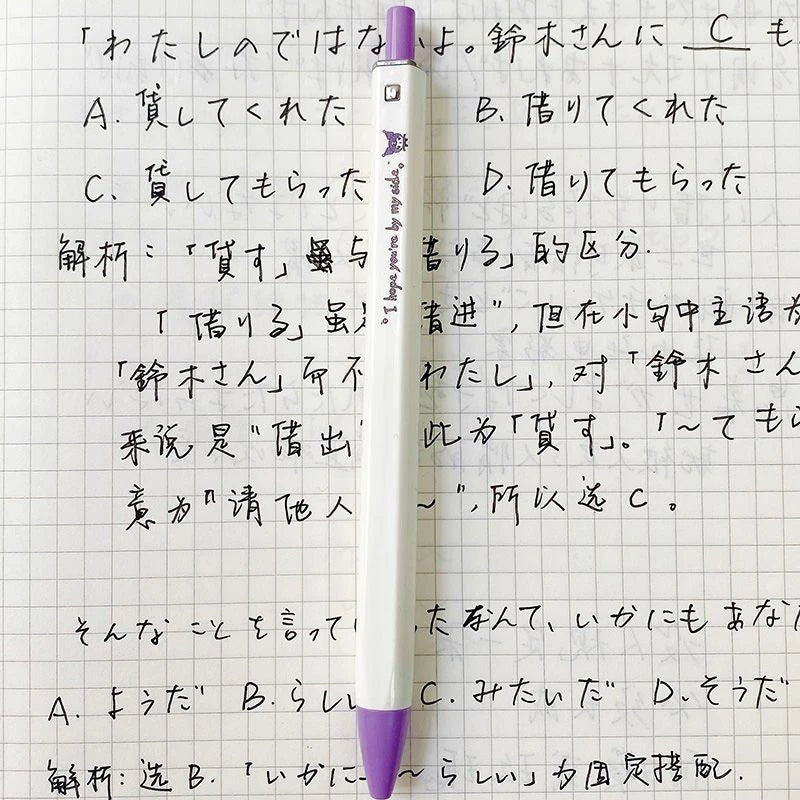 「わたしのではな よ。鈴木さんに C も
A. 貸してくれた B. 借りてくれた
C. 貸してもらった D. 借りてもらった
解析：「貸す」与 借りる」的区分.
「借りる」虽 借进", 但在小句中主语为
「鈴木さん」而不 わたし」, 对「鈴木さん
来说是"借出 此为「貸す」。「～ても
意为"请他人 ～", 所以选 C 。
そんなことを言って たなんて、いかにもあな
A. ようだ B. らし C. みたいだ D. そうだ
解析: 选 B. 「いかに ～らしい」为固定搭配.
I hope you're by my side.